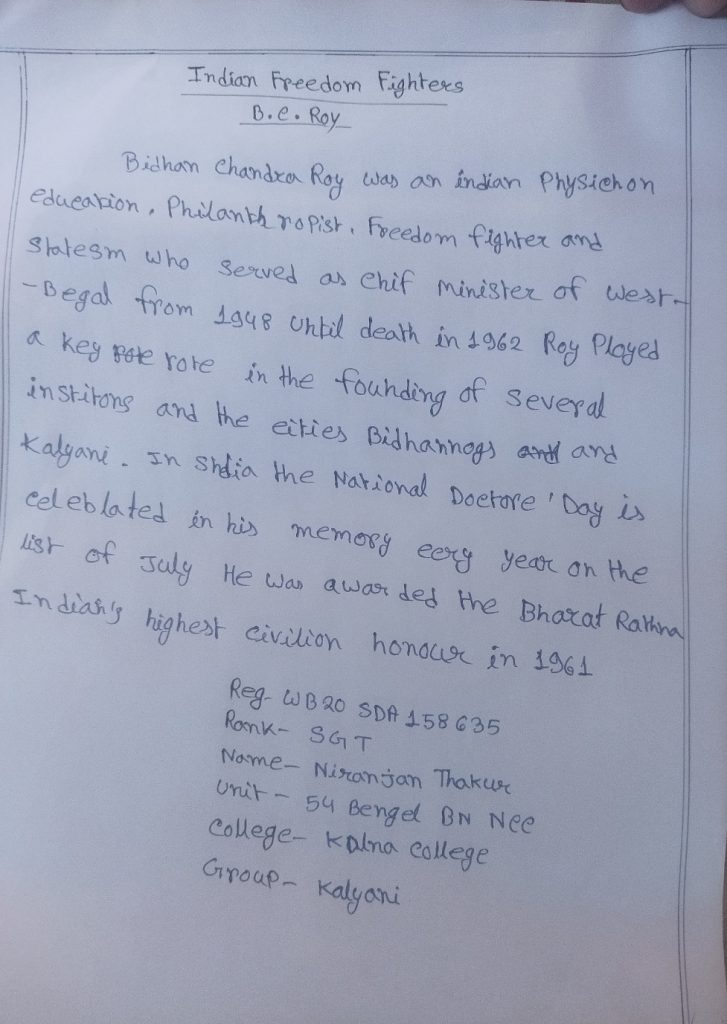 Indian Freedom Fighters
B.C. Roy
Bidhan Chandra Roy was an indian Physichon
education, Philanthropist, Freedom fighter and
Statesm who served as chif minister of west-
-Begal from 1948 Uhtil death in 1962 Roy Played
a key rore in the founding of several
institons and the cities Bidhannogs and
Kalyani. In Shdia the National Doctore' Day is
celeblated in his memory eery year on the
list of July He was awarded the Bharat Rathna
Indian's highest civilion honour in 1961
Reg- WB20 SDA 158635
Rank- SGT
Name- Niranjan Thakur
Unit- 54 Bengel BN Ncc
College- Kalna College
Group- Kalyani